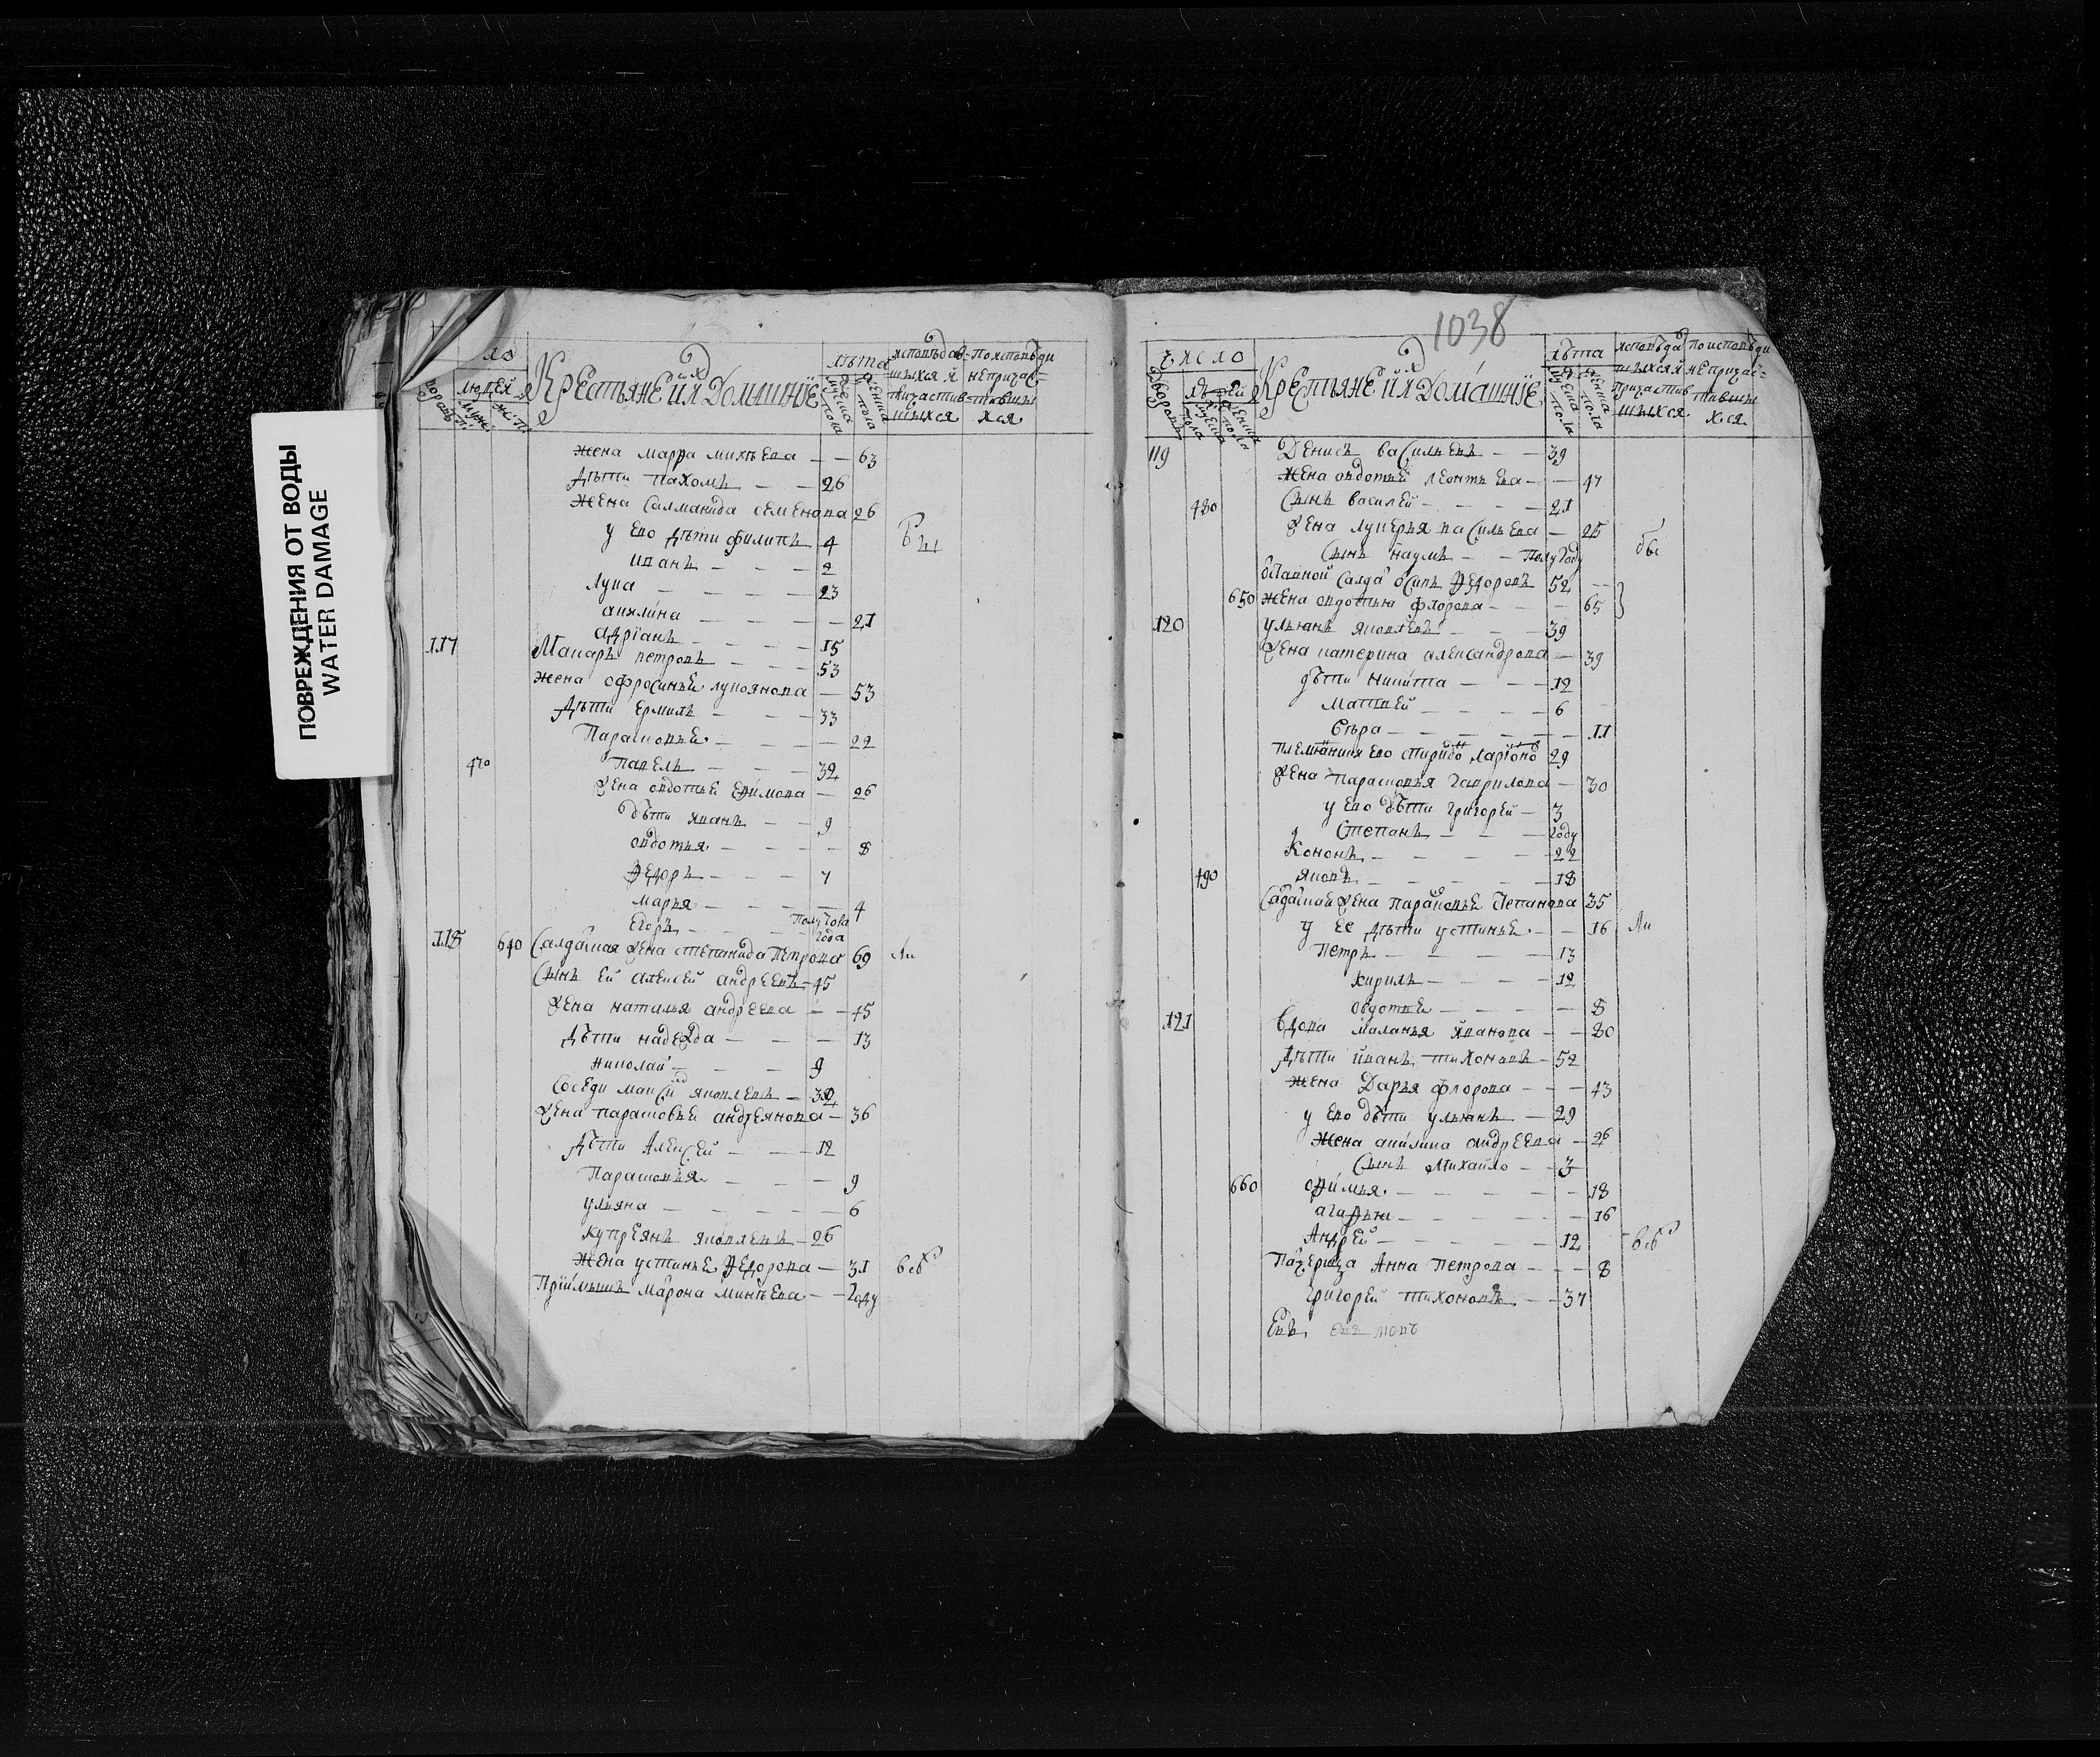 ПОВРЕЖДЕНИЯ ОТ ВОДЫ
WATER DAMAGE
людей
Крестьяне и их домашние
лѣта
мужеска пола
женска пола
исповѣдав-
шихся и
причастив-
шихся
по исповѣди
не причас-
тивши
хся
жена марѳа михѣева — — 63
дѣти пахомъ — — 26
жена саламанида семенова 26
у ево дѣти филипъ 4
иванъ — — — 2
лука — — — — 23
акилина — — — — 21
адрианъ — — — 15
117 Макаръ петровъ — — — 53
жена офросинья лукоянова — 53
дѣти ермилъ — — — 33
Парасковья — — — 22
470 павелъ — — — 32
жена овдотья ефимова — 26
дѣти иванъ — — 9
овдотья — — — 8
ѳедоръ — — — 7
марья — — — — 4
Егоръ полутора года
118 640 салдацкая жена степанида петрова 69
сынъ ей алексей андреевъ — 45
жена наталья андреева — — 45
дѣти надежда — — — 13
николай — — — 9
соседи максим яковлевъ — 32
жена парасковья андреянова — 36
дѣти Алексей — — — 12
Парасковья — — — 9
ульяна — — — — — 6
купреянъ яковлевъ — 26
жена устинья ѳедорова — 31
Приимышъ марѳна минѣева — — году
1038
число
дворовъ
людей
мужеска пола
женска пола
Крестьяне и их домашние
лѣта
мужеска пола
женска пола
исповѣдав
шихся и
причастив
шихся
по исповѣди
не причас-
тивши
хся
119 Денисъ васильевъ — — 39
жена овдотья леонтьева — — 47
480 сынъ василей — — — — 21
жена лукерья васильева — 25
сынъ наумъ — — полугоду
отставной салдат осипъ ѳедоровъ 52
650 жена овдотья флорова — — — 65
120 ульянъ яковлевъ — — — 39
жена катерина александрова — 39
дѣти никита — — — 12
матвей — — — — 6
вѣра — — — — — — 11
племянник ево спиридон ларионов 29
жена парасковья гаврилова — 30
у ево дѣти григорей — 3
степанъ — — — году
кононъ — — — — — 22
490 яковъ — — — — — 18
салдацкая жена парасковья степанова 35
у ее дѣти устинья — — 16
петръ — — — — 13
кирилъ — — — — 12
овдотья — — — — 8
121 вдова маланья иванова — — 80
дѣти иванъ тихоновъ — 52
жена Дарья флорова — — — 43
у ево дѣти ульянъ — 29
жена акилина андреева — 26
сынъ михайло — — 3
660 офимья — — — — — — 18
агафья — — — — — — 16
Андрей — — — — — 12
падчерица Анна петрова — — — 8
григорей тихоновъ — — 37